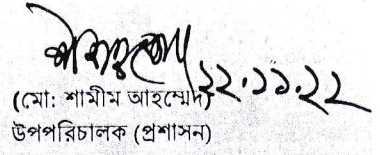 ২২.১১.২২
(মো: শামীম আহম্মেদ)
উপপরিচালক (প্রশাসন)